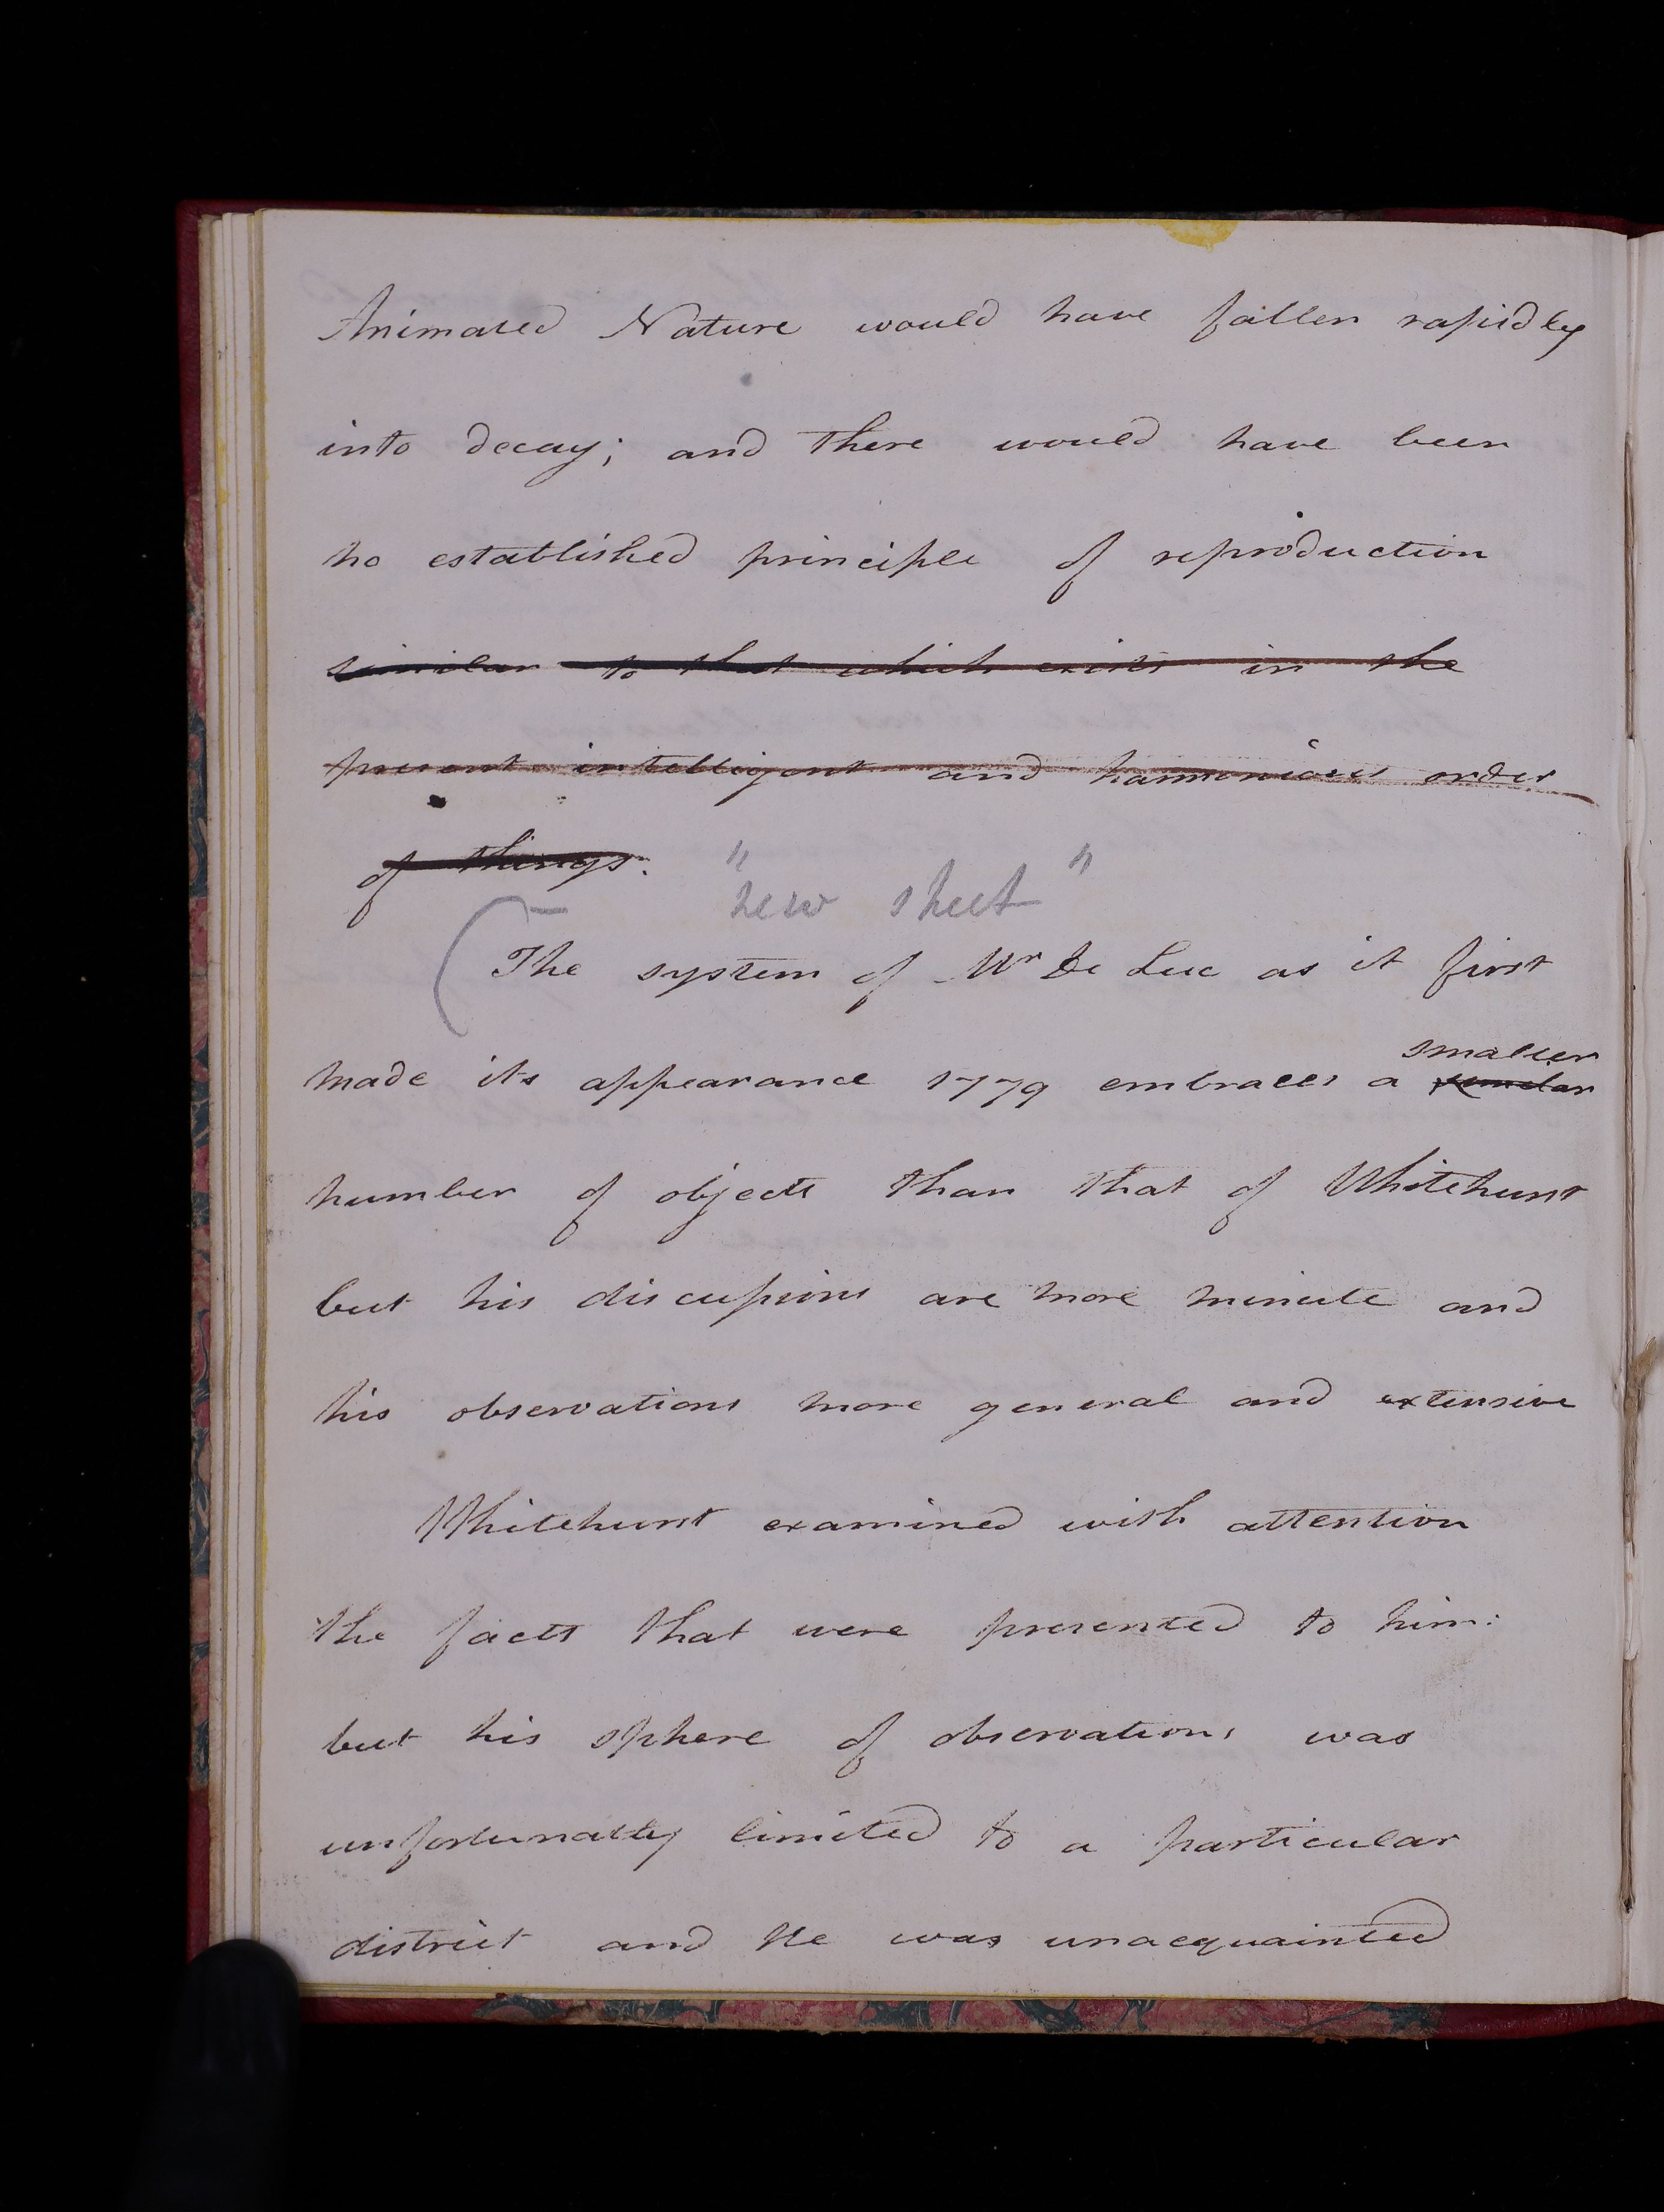 Animated Nature would have fallen rapidly
into decay; and there would have been
no established principle of reproduction
similar to that which exists in the
present intelligent and harmonious order
of things.
"new sheet"
The system of Mr De Luc as it first
smaller
made its appearance 1779 embraces a similar
number of objects than that of Whitehurst
but his discussions are more minute and
his observations more general and extensive
Whitehurst examined with attention
the facts that were presented to him:
but his sphere of observations was
unfortunatly limited to a particular
district and He was unacquainted